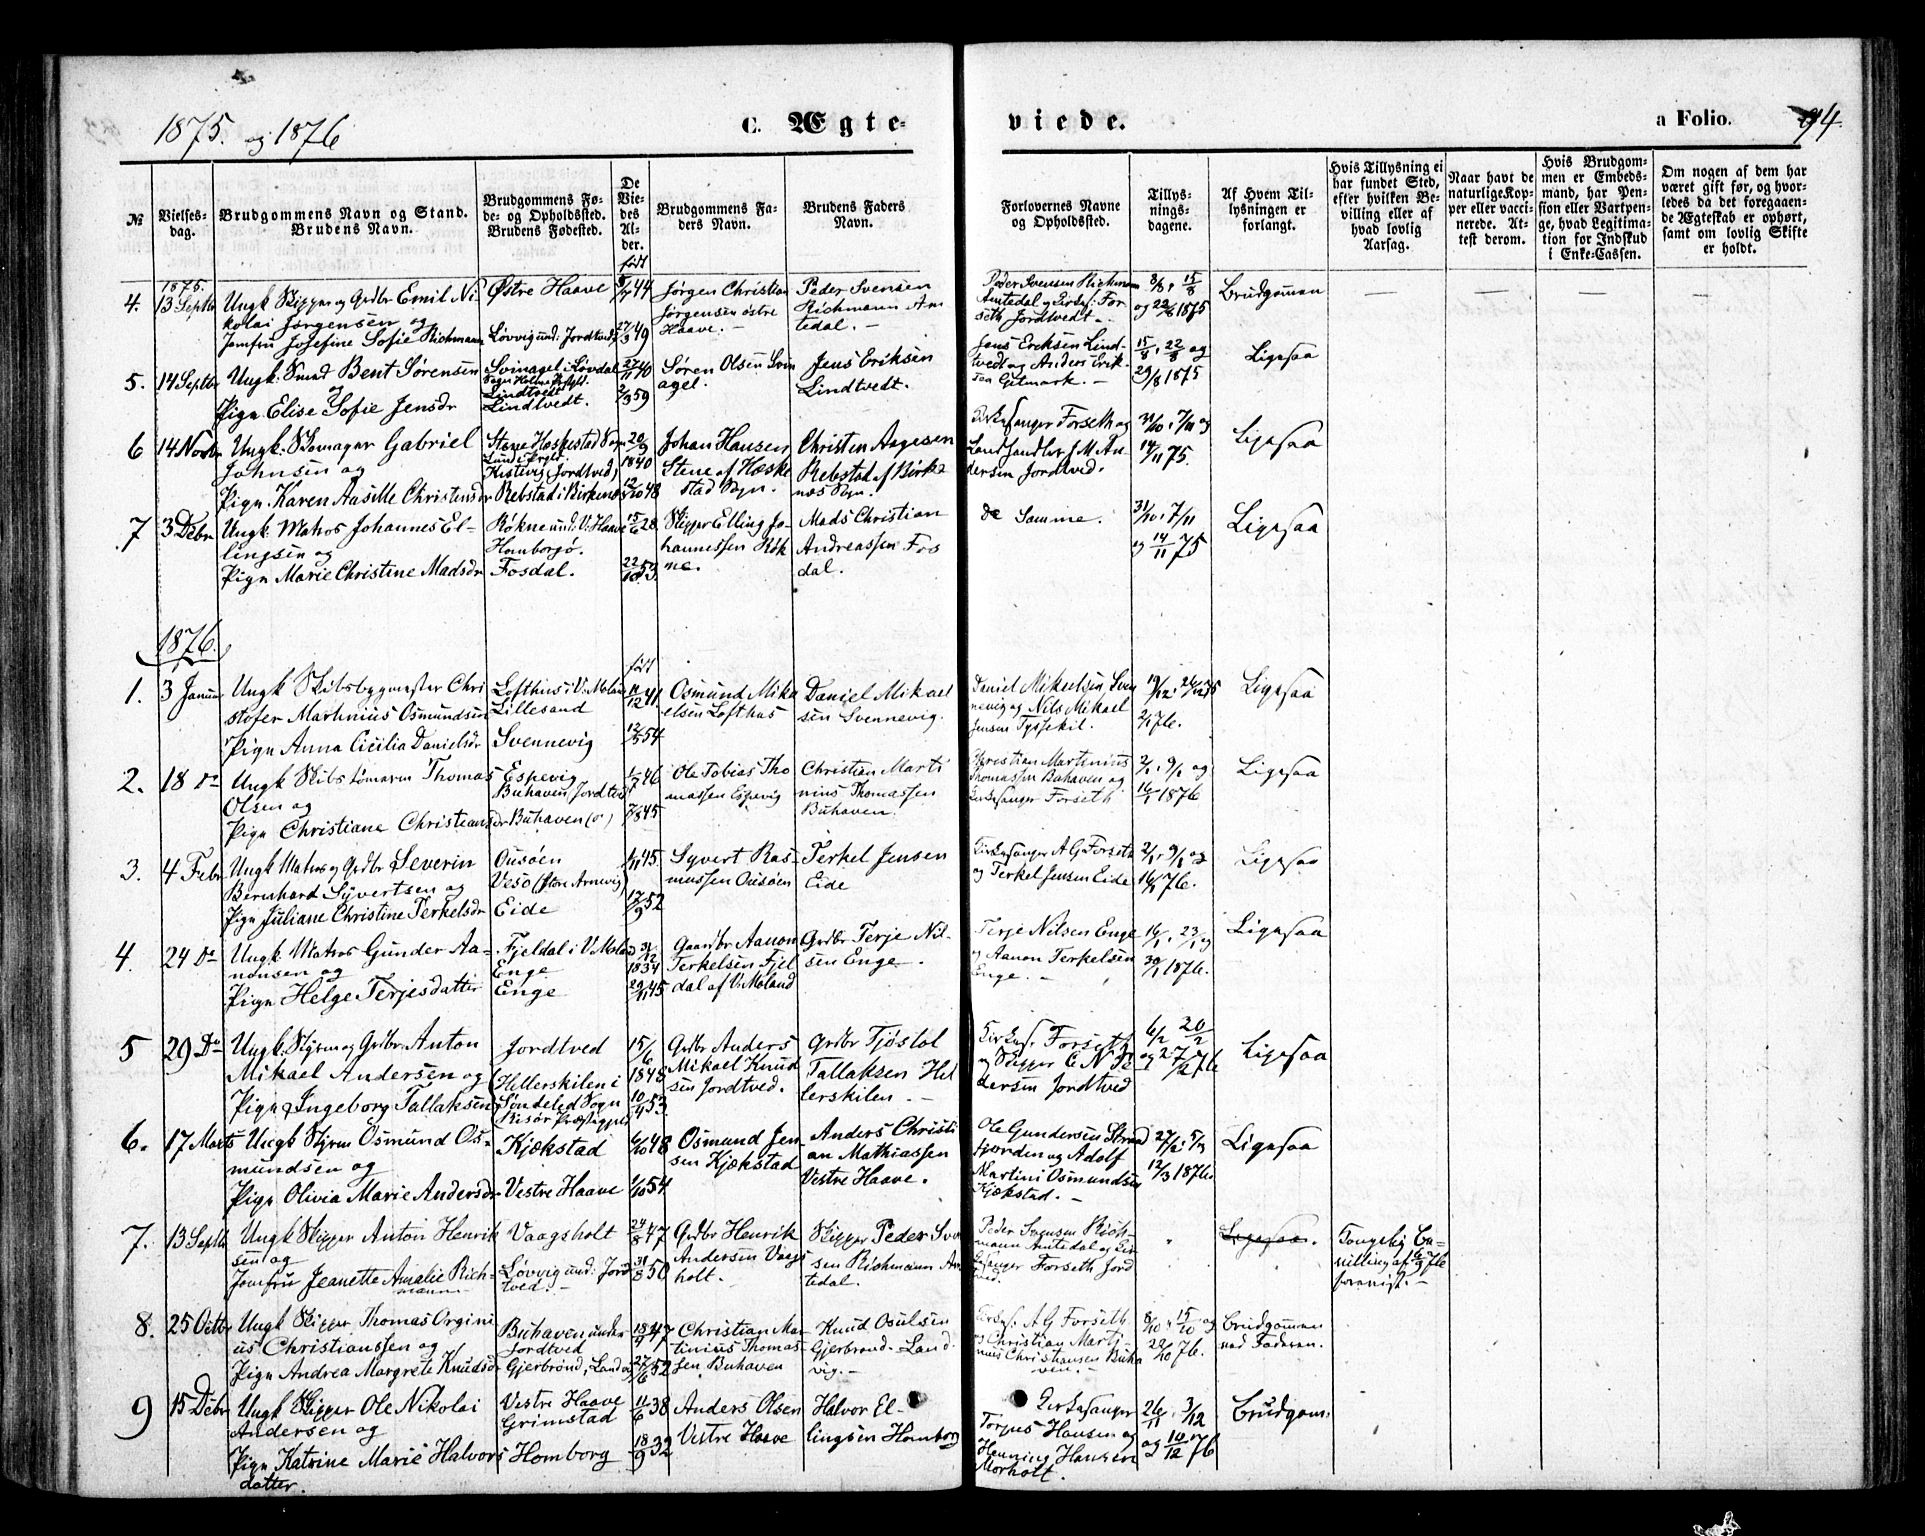 1875. og 1876
C. Ægte-
viede.
a Folio. 94.
№
Vielses-
dag.
Brudgommens Navn og Stand.
Brudens Navn.
Brudgommens Fø-
de- og Opholdssted.
Brudens Fødested.
De
Vie-
des
Al-
der.
født
Brudgommens Fa-
ders Navn.
Brudens Faders
Navn.
Forlovernes Navne
og Opholdssted.
Tillys-
nings-
dagene.
Af Hvem Til-
lysningen er
forlangt.
Hvis Tillysning ei
har fundet Sted,
efter hvilken Be-
villing eller af
hvad lovlig
Aarsag.
Naar havt de
naturlige Kop-
per eller vacci-
nerede. At-
test derom.
Hvis Brudgom-
men er Embeds-
mand, har Pen-
sion eller Vartpen-
ge, hvad Legitima-
tion for Indskud
i Enke-Cassen.
Om nogen af dem har
været gift før, og hvor-
ledes da det foregaaen-
de Ægteskab er ophørt,
samt om lovlig Skifte
er holdt.
1875.
4. 13 Septbr Ungk Skipper og Grdbr Emil Ni-
kolai Jørgensen og
Jomfru Josefine Sofie Richmann
Østre Haave
Løvvig und: Jordtvedt
44
27/3 49
Jørgen Christian
Jørgensen østre
Haave. -
Peder Svensen
Richmann Am
tedal. -
Peder Svensen Richmann
Amtedal og Kirkes: For
seth Jordtvedt -
8/8, 15/8
og 22/8 1875
Brudgommen
5. 14 Septbr Ungk: Smed Bent Sørensen
og
Pign Elise Sofie Jensdr
Svinagel: Løvdal
Sogn Holme Præstgj.
Lindtvedt
Lindtvedt.
27/11 40
2/3 59
Søren Olsen Svin
agel.
Jens Eriksen
Lindtvedt.
Jens Eriksen Lind-
tvedt og Anders Erik-
sen Gitmark. -
15/8, 22/8 og
29/8 1875
Ligesaa
6 14 Novbr Ungk: Skomager Gabriel
Johnsen og
Pign. Karen Aasille Christensdr
Stene Hæskestad Sogn
Lunds Prgld.
Kistevig, Jordtved,
Rebstad i Birkenes
20/9
1840
12/10 48
Johan Hansen
Stene af Hæske
stad Sogn.
Christen Aagesen
Rebstad af Birke
nes Sogn.
Kirkesanger Forseth og
Landhandler J. M. An
dersen Jordtved.
31/10, 7/11 og
14/11 75.
Ligesaa
7 3 Debr Ungk: Matros Johannes El-
lingsen og
Pign Marie Christine Madsdr
Røkne und: V: Haave
Homborgø.
Fosdal.
15/6 28
22/10 53.
Skipper Elling Jo-
hannessen Røk
ne.
Mads Christian
Andreassen Fos
dal.
de Samme.
31/10, 7/11
og 14/11 75
Ligesaa
1876.
født
1. 3 Januar Ungk Skibsbygmester Chri
stofer Mathnius Osmundsen
Pign Anna Cicilia Danielsdr
Lofthus i V. Moland
Lillesand
Svennevig
11/12 41
12/5 54
Osmund Mika
elsen Lofthus
Daniel Mikael
sen Svennevig.
Daniel Mikaelsen Sven
nevig og Nils Mikael
Jensen Tyssekil.
19/12, 26/12 75
2/1 76.
Ligesaa
2. 18 Do Ungk Skibstømmerm Thomas
Olsen og
Pign Christiane Christiansdr
Espevig
Buhaven, Jordtved
Buhaven (o)
1/7 46
7/8 45
Ole Tobias Tho
massen Espevig
Christian Marti
nius Thomassen
Buhaven.
Christian Martinius
Thomassen Buhaven og
Kirkesanger Forseth
2/1, 9/1 og
16/1 1876
Ligesaa
3. 4 Febr Ungk Matros og Grdbr Severin
Bernhard Syvertsen og
Pign Juliane Christine Terkelsdr
Ousøen
Vesø (Store Arnevig)
Eide
1/11 45.
17/9 52
Syvert Ras-
mussen Ousøen
Terkel Jensen
Eide
Kirkesanger A G Forseth
og Terkel Jensen Eide
2/1, 9/1 og
16/1 76.
Ligesaa
4. 24 Do Ungk Matros Gunder Aa-
nonsen og
Pign Helge Terjesdatter
Fjeldal i V. Moland
Enge
Enge
31/12
1834
29/11 45
Gaardbr Aanon
Terkelsen Fjel
dal af V. Moland
Grdbr Terje Nil-
sen Enge.
Terje Nilsen Enge
og Aanon Terkelsen
Enge. -
16/1, 23/1 og
30/1 1876.
Ligesaa
5 29 Do Ungk: Styrm og Grdbr Anton
Mikael Andersen og
Pign Ingeborg Tallaksen
Jordtved
Hellerskilen i
Søndeled Sogn
Risør Præstgjæld
15/6
1848
10/4 53.
Grdbr Anders
Mikael Knud
sen Jordtved.
Grdbr Tjøstol
Tallaksen Hel
lerskilen. -
Kirkes. Forseth
og Skipper C. N. An
dersen Jordtved
6/2 20/2
og 27/2 76
Ligesaa
6. 17 Marts Ungk Styrm Osmund Os-
mundsen og
Pign Olivia Marie Andersdr
Kjækstad
Vestre Haave
6/10 48
1/10 54
Osmund Jen
sen Kjækstad
Anders Christi
an Mathiassen
Vestre Haave.
Ole Gundersen Strand
fjorden og Adolf
Martini Osmundsen
Kjækstad. -
27/2, 5/3
12/3 1876.
Ligesaa
7. 13 Septbr Ungk Skipper Anton Henrik
sen og
Jomfru Jeanette Amalie Rich-
mann
Vaagsholt
Løvvig und: Jord
tved. -
24/8 47
31/8 50
Grdbr Henrik
Andersen Vaags
holt.
Skipper Peder Sven
sen Richmann Am
tedal.
Peder Svensen Rich-
mann Amtedal og Kir
kesanger Forseth Jord
tved.
"
Ligesaa.
Kongelig Be-
villing af 6/9 76
forevist. -
8. 25 Octbr Ungk Skipper Thomas Orgini
us Christianssen og
Pign Andrea Margrete Knudsdr
Buhaven under
Jordtved
Gjerbrond, Landvig
18/9 47
27/6 52
Christian Mar-
tinius Thomas-
sen Buhaven
Knud Osulsen
Gjerbrond. Land
vig. -
Kirkes. A G Forseth
og Christian Marti
nius Christiansen Buha
ven. -
8/10, 15/10 og
22/10 76.
Brudgommen
ved Faderen.
9 15 Debr Ungk Skipper Ole Nikolai
Andersen og
Pign Katrine Marie Halvors
datter.
Vestre Haave
Grimstad
Homborg
11/6 38
18/9 32
Anders Olsen
Vestre Haave
Halvor El-
lingsen Homborg
Kirkesanger
Torjus Hansen og
Henning Hansen
Morholt.
26/11, 3/12
og 10/12 76
Brudgom: